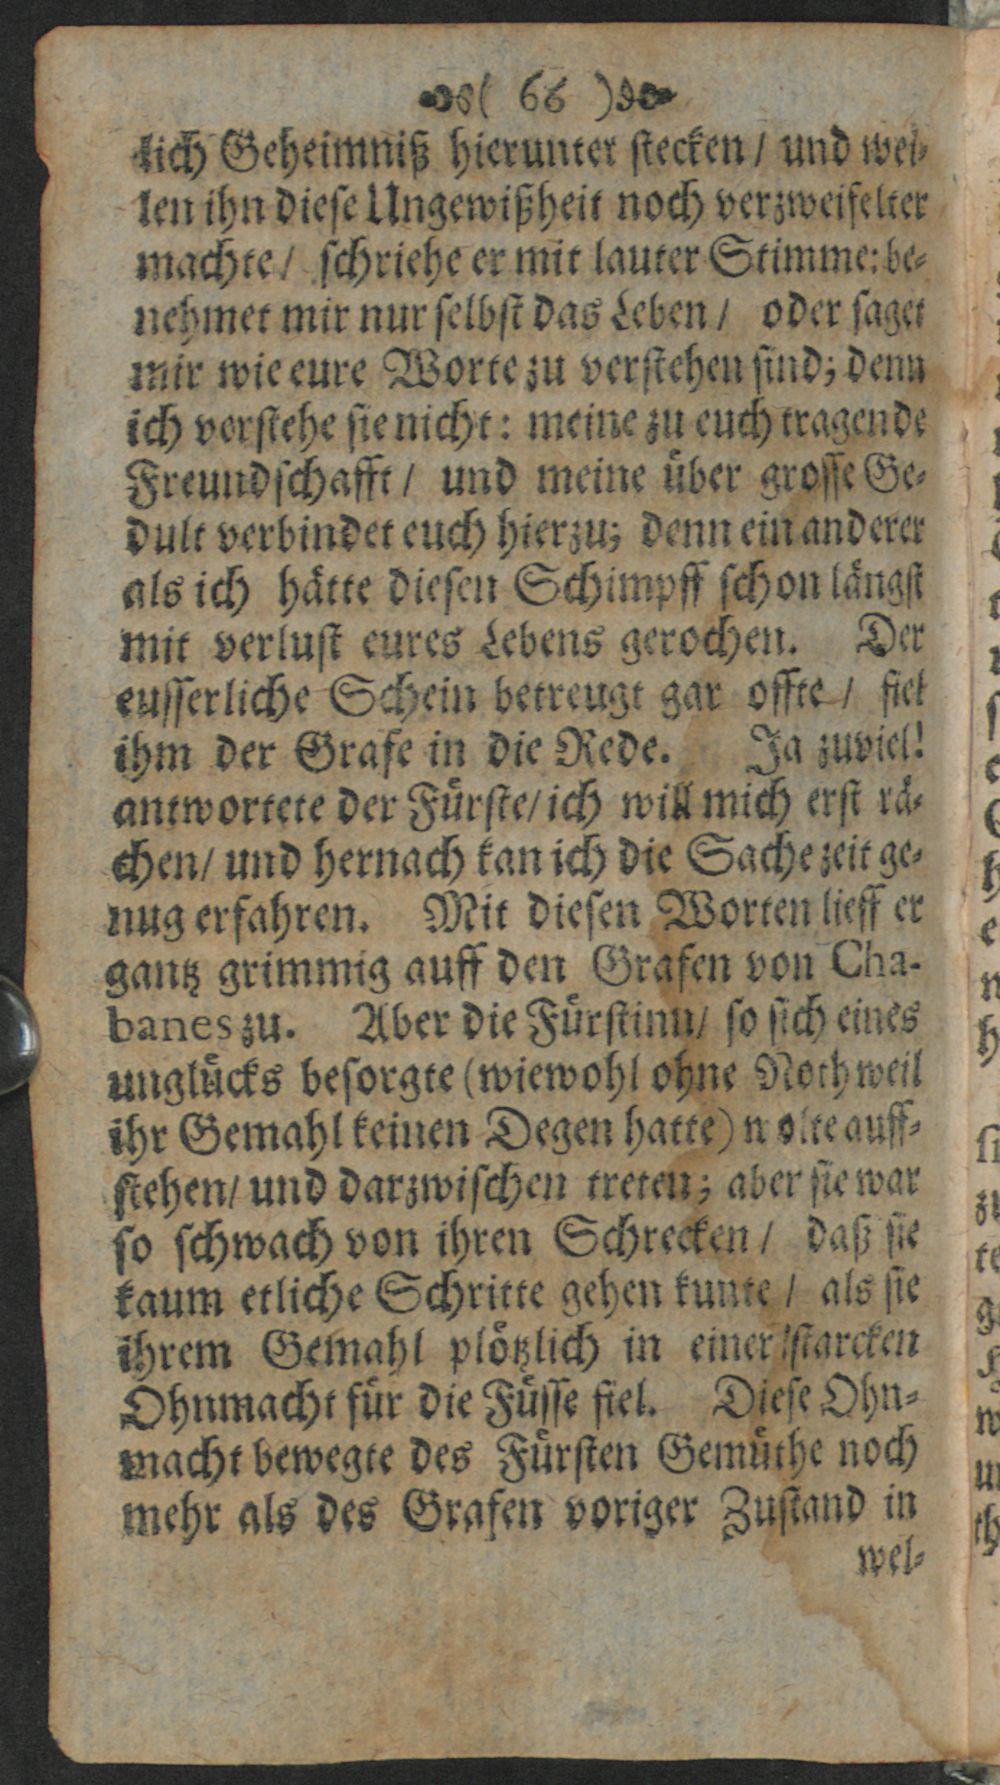 ( 66 )
lich Geheimniß hierunter stecken / und wei-
len ihn diese Ungewißheit noch verzweifelter
machte / schriehe er mit lauter Stimme: be-
nehmet mir nur selbst das Leben / oder saget
mir wie eure Worte zu verstehen sind; denn
ich verstehe sie nicht: meine zu euch tragende
Freundschafft / und meine über grosse Ge-
dult verbindet euch hierzu; denn ein anderer
als ich hätte diesen Schimpff schon längst
mit verlust eures Lebens gerochen. Der
eusserliche Schein betreugt gar offte / fiel
ihm der Grafe in die Rede. Ja zuviel!
antwortete der Fürste / ich will mich erst rä-
chen / und hernach kan ich die Sache zeit ge-
nug erfahren. Mit diesen Worten lieff er
gantz grimmig auff den Grafen von Cha-
banes zu. Aber die Fürstinn / so sich eines
unglücks besorgte (wiewohl ohne Noth weil
ihr Gemahl keinen Degen hatte) wolte auff-
stehen / und darzwischen treten; aber sie war
so schwach von ihren Schrecken / daß sie
kaum etliche Schritte gehen kunte / als sie
ihrem Gemahl plötzlich in einer starcken
Ohnmacht für die Füsse fiel. Diese Ohn-
macht bewegte des Fürsten Gemüthe noch
mehr als des Grafen voriger Zustand in
wel-